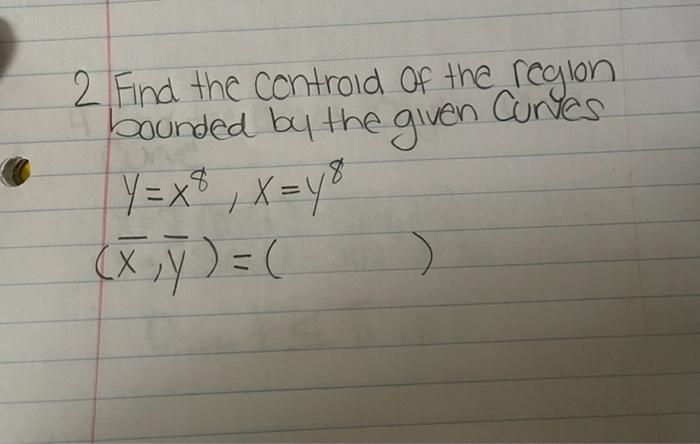 2 Find the centroid of the region
bounded by the given Curves
y = x⁸ , x = y⁸
(x̅ , y̅ ) = ( )